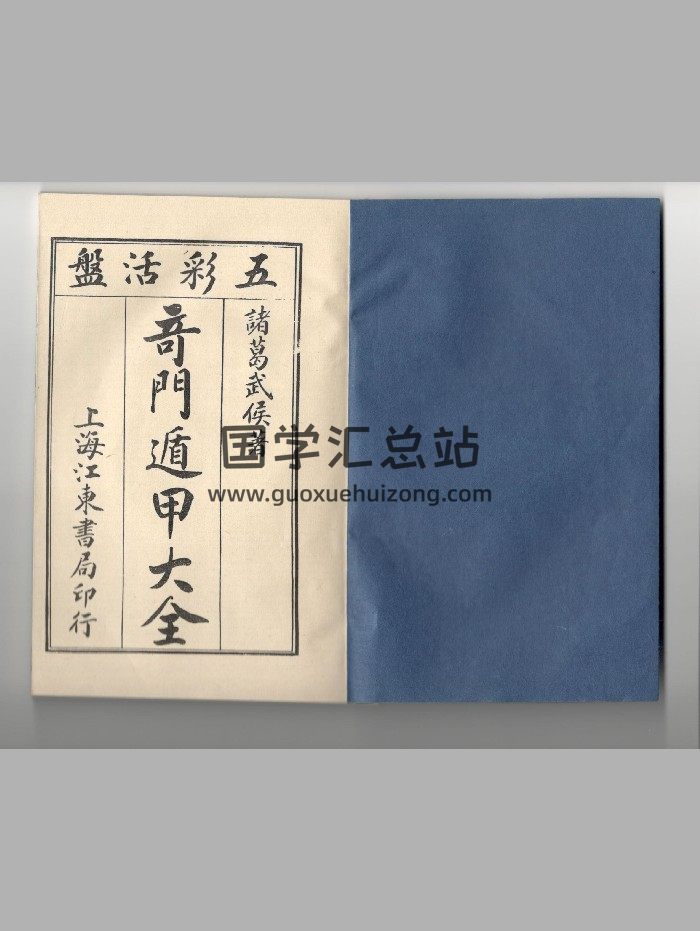 五彩活盤
諸葛武侯著
竒門遁甲大全
上海江東書局印行
国学汇总站
www.guoxuehuizong.com